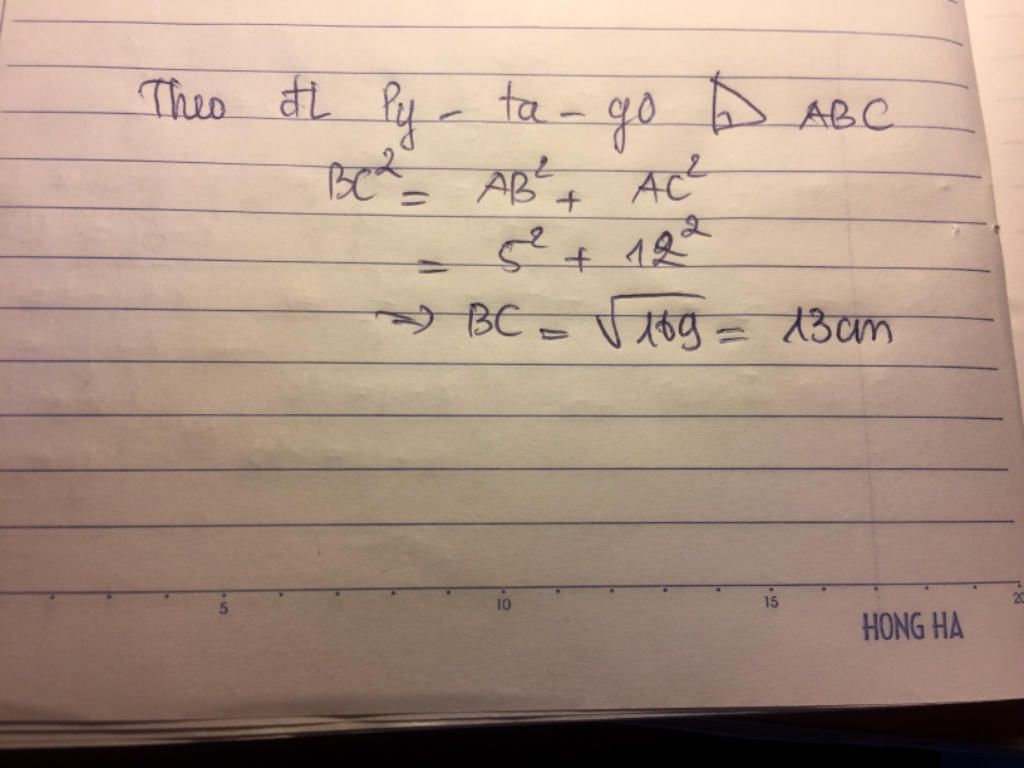 Theo đL Py - ta - go ABC
BC² = AB² + AC²
= 5² + 12²
⇒ BC = √169 = 13cm
5 10 15 20
HONG HA